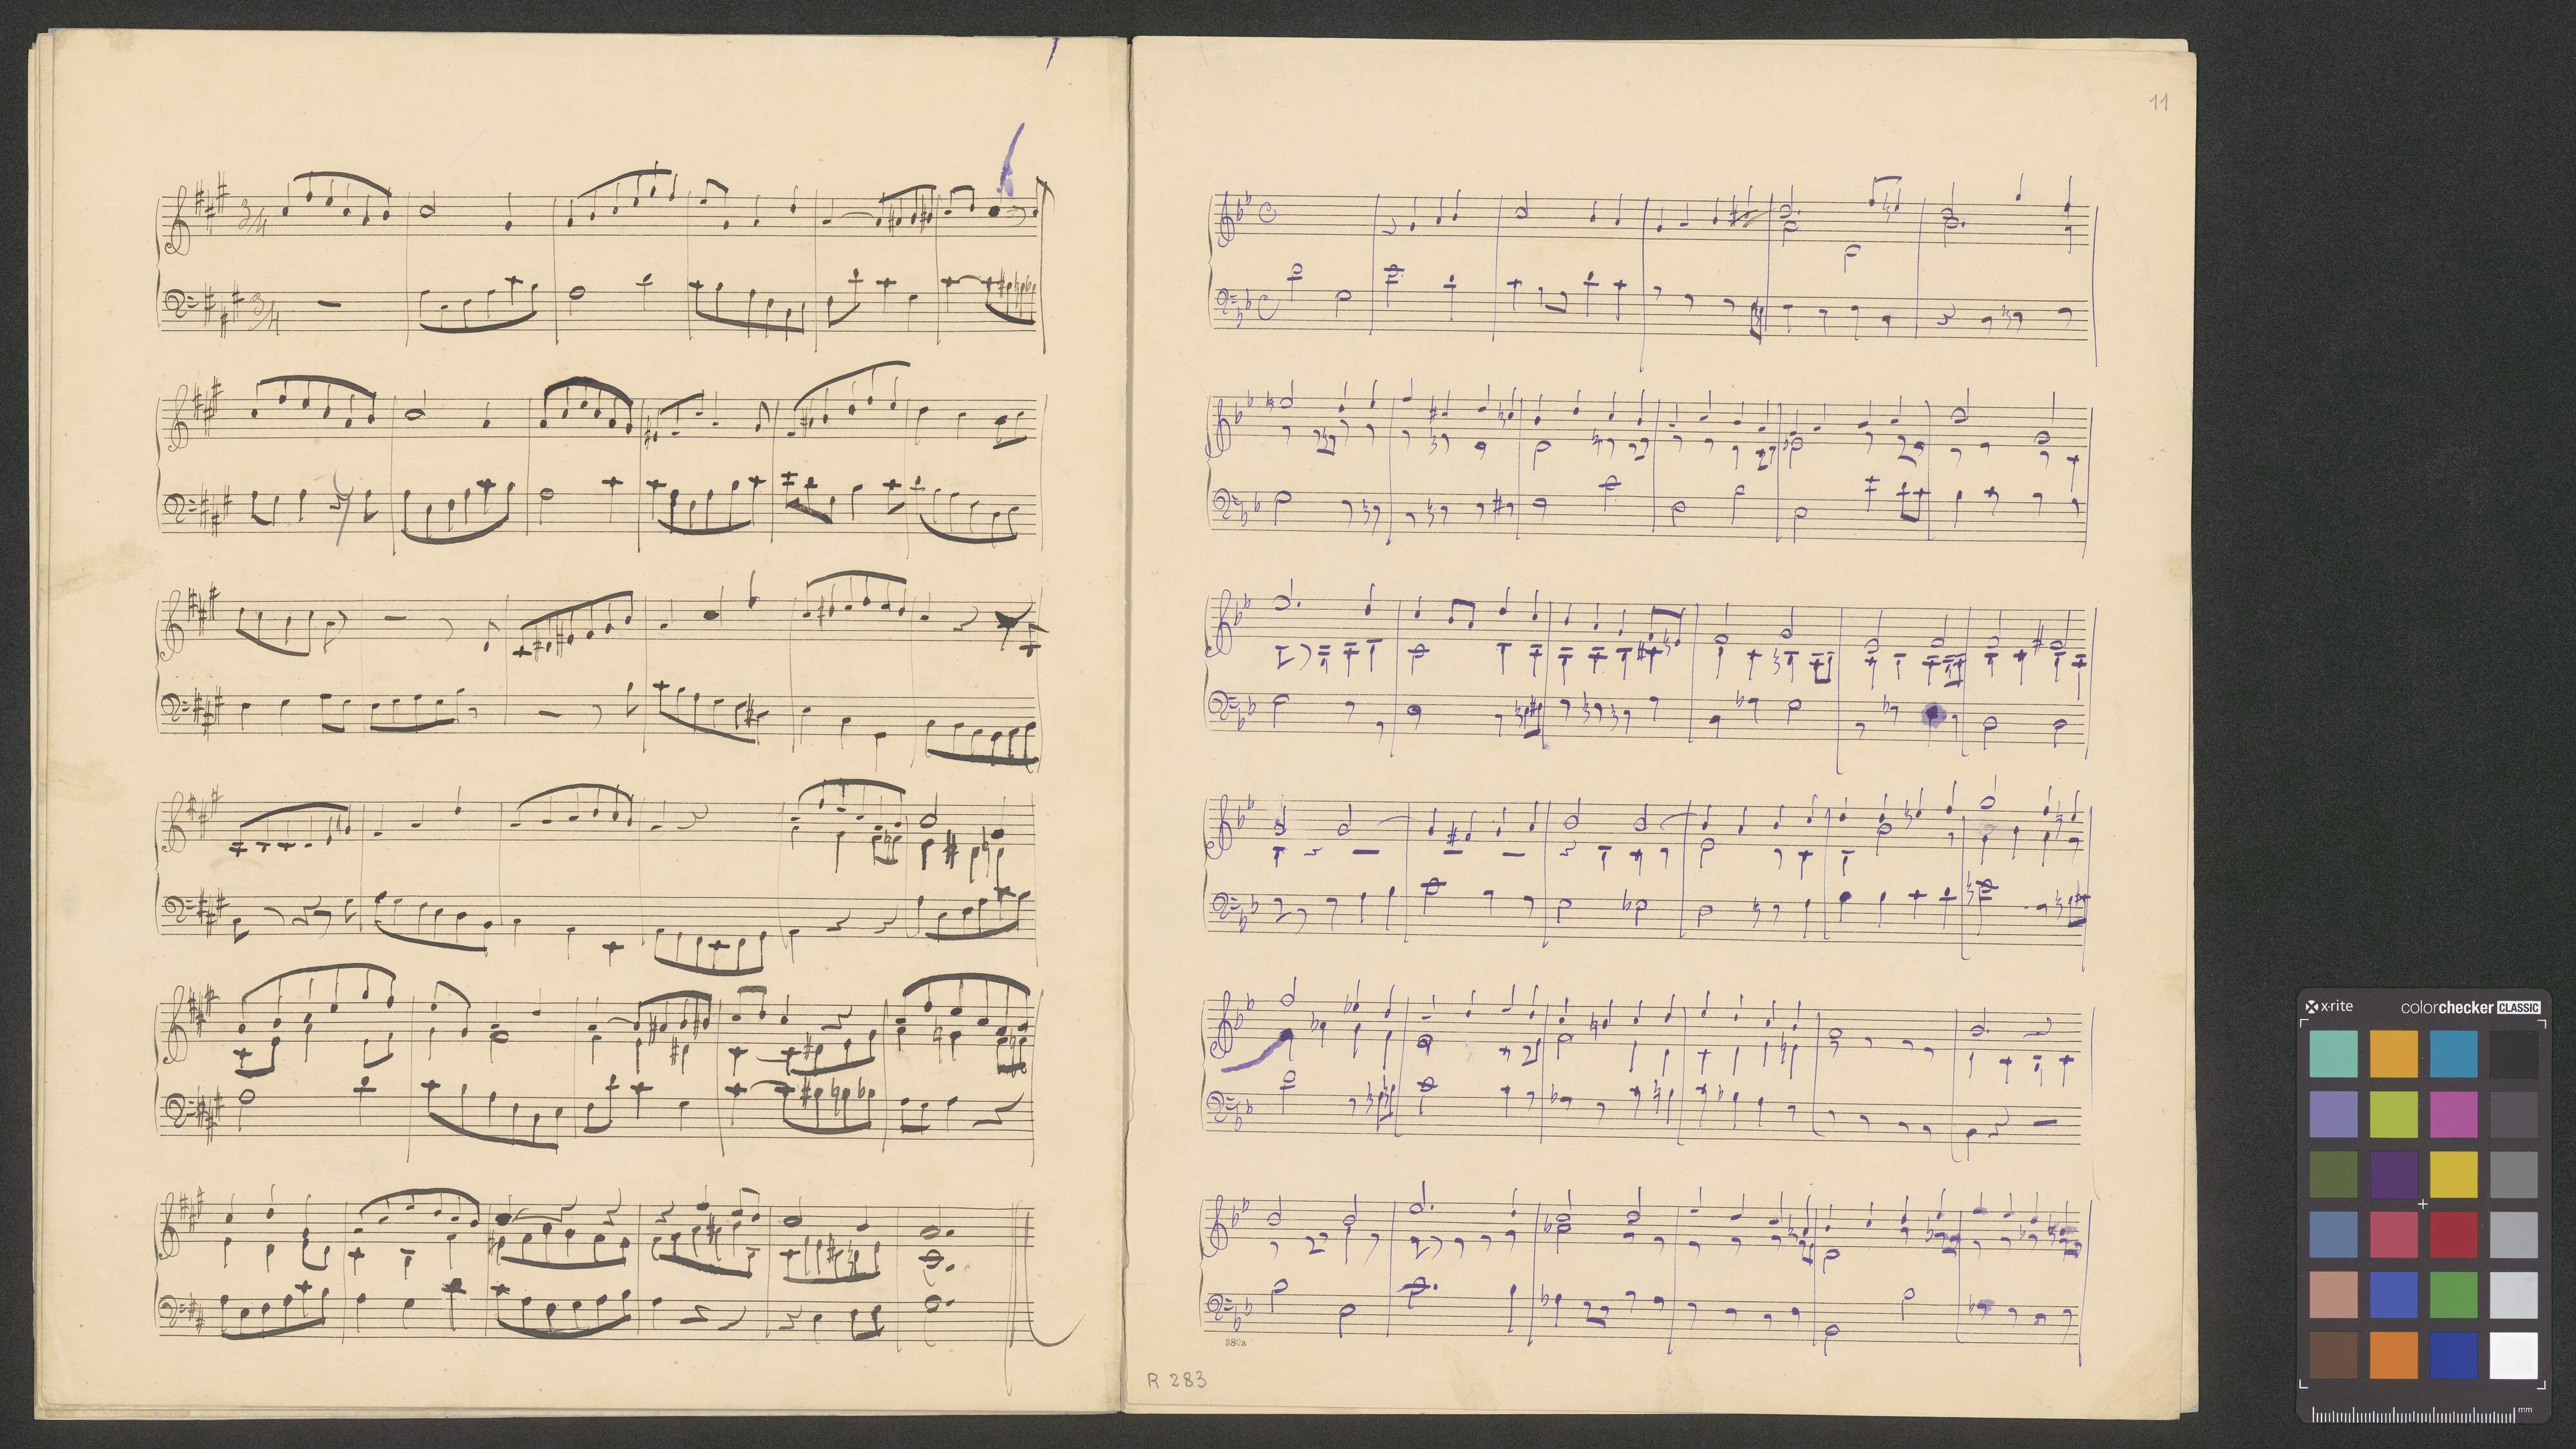 3/4
3/4
11
C
C
380a
R 283
x-rite
colorchecker CLASSIC
mm